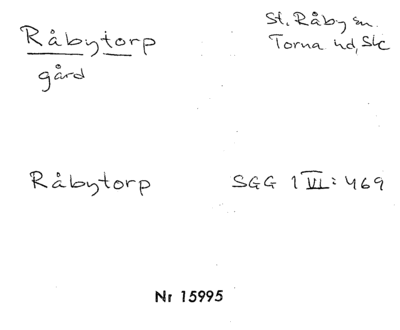 Råbytorp
gård
St. Råby sn.
Torna hd, Sk
Råbytorp
SGG 1 VI: 469
Nr 15995